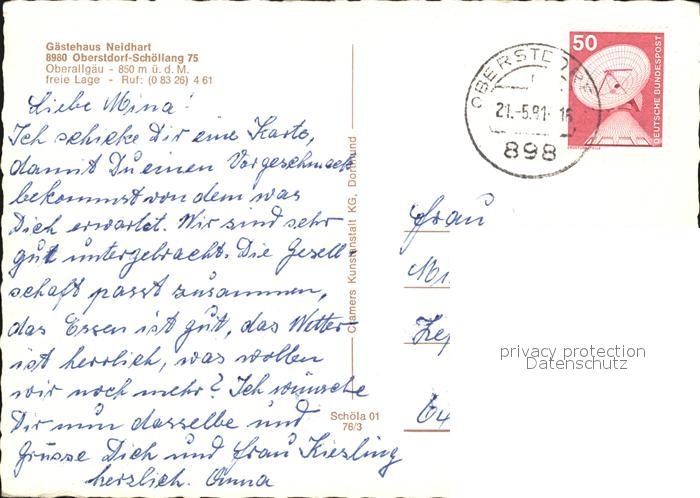 Gästehaus Neidhart
8980 Oberstdorf-Schöllang 75
Oberallgäu - 850 m ü. d. M.
freie Lage - Ruf: (0 83 26) 4 61
Liebe Mina!
Ich schicke Dir eine Karte,
damit Du einen Vorgeschmack
bekommst von dem was
Dich erwartet. Wir sind sehr
gut untergebracht. Die Gesell-
schaft passt zusammen,
das Essen ist gut, das Wetter
ist herrlich, was wollen
wir noch mehr? Ich wünsche
Dir nun dasselbe und
Grüsse Dich und Frau Kiesling
herzlich. Anna
Schöla 01
76/3
Cramers Kunstanstalt KG, Dortmund
50
DEUTSCHE BUNDESPOST
21.-5.81-16
898
Frau
Mi
privacy protection
Datenschutz